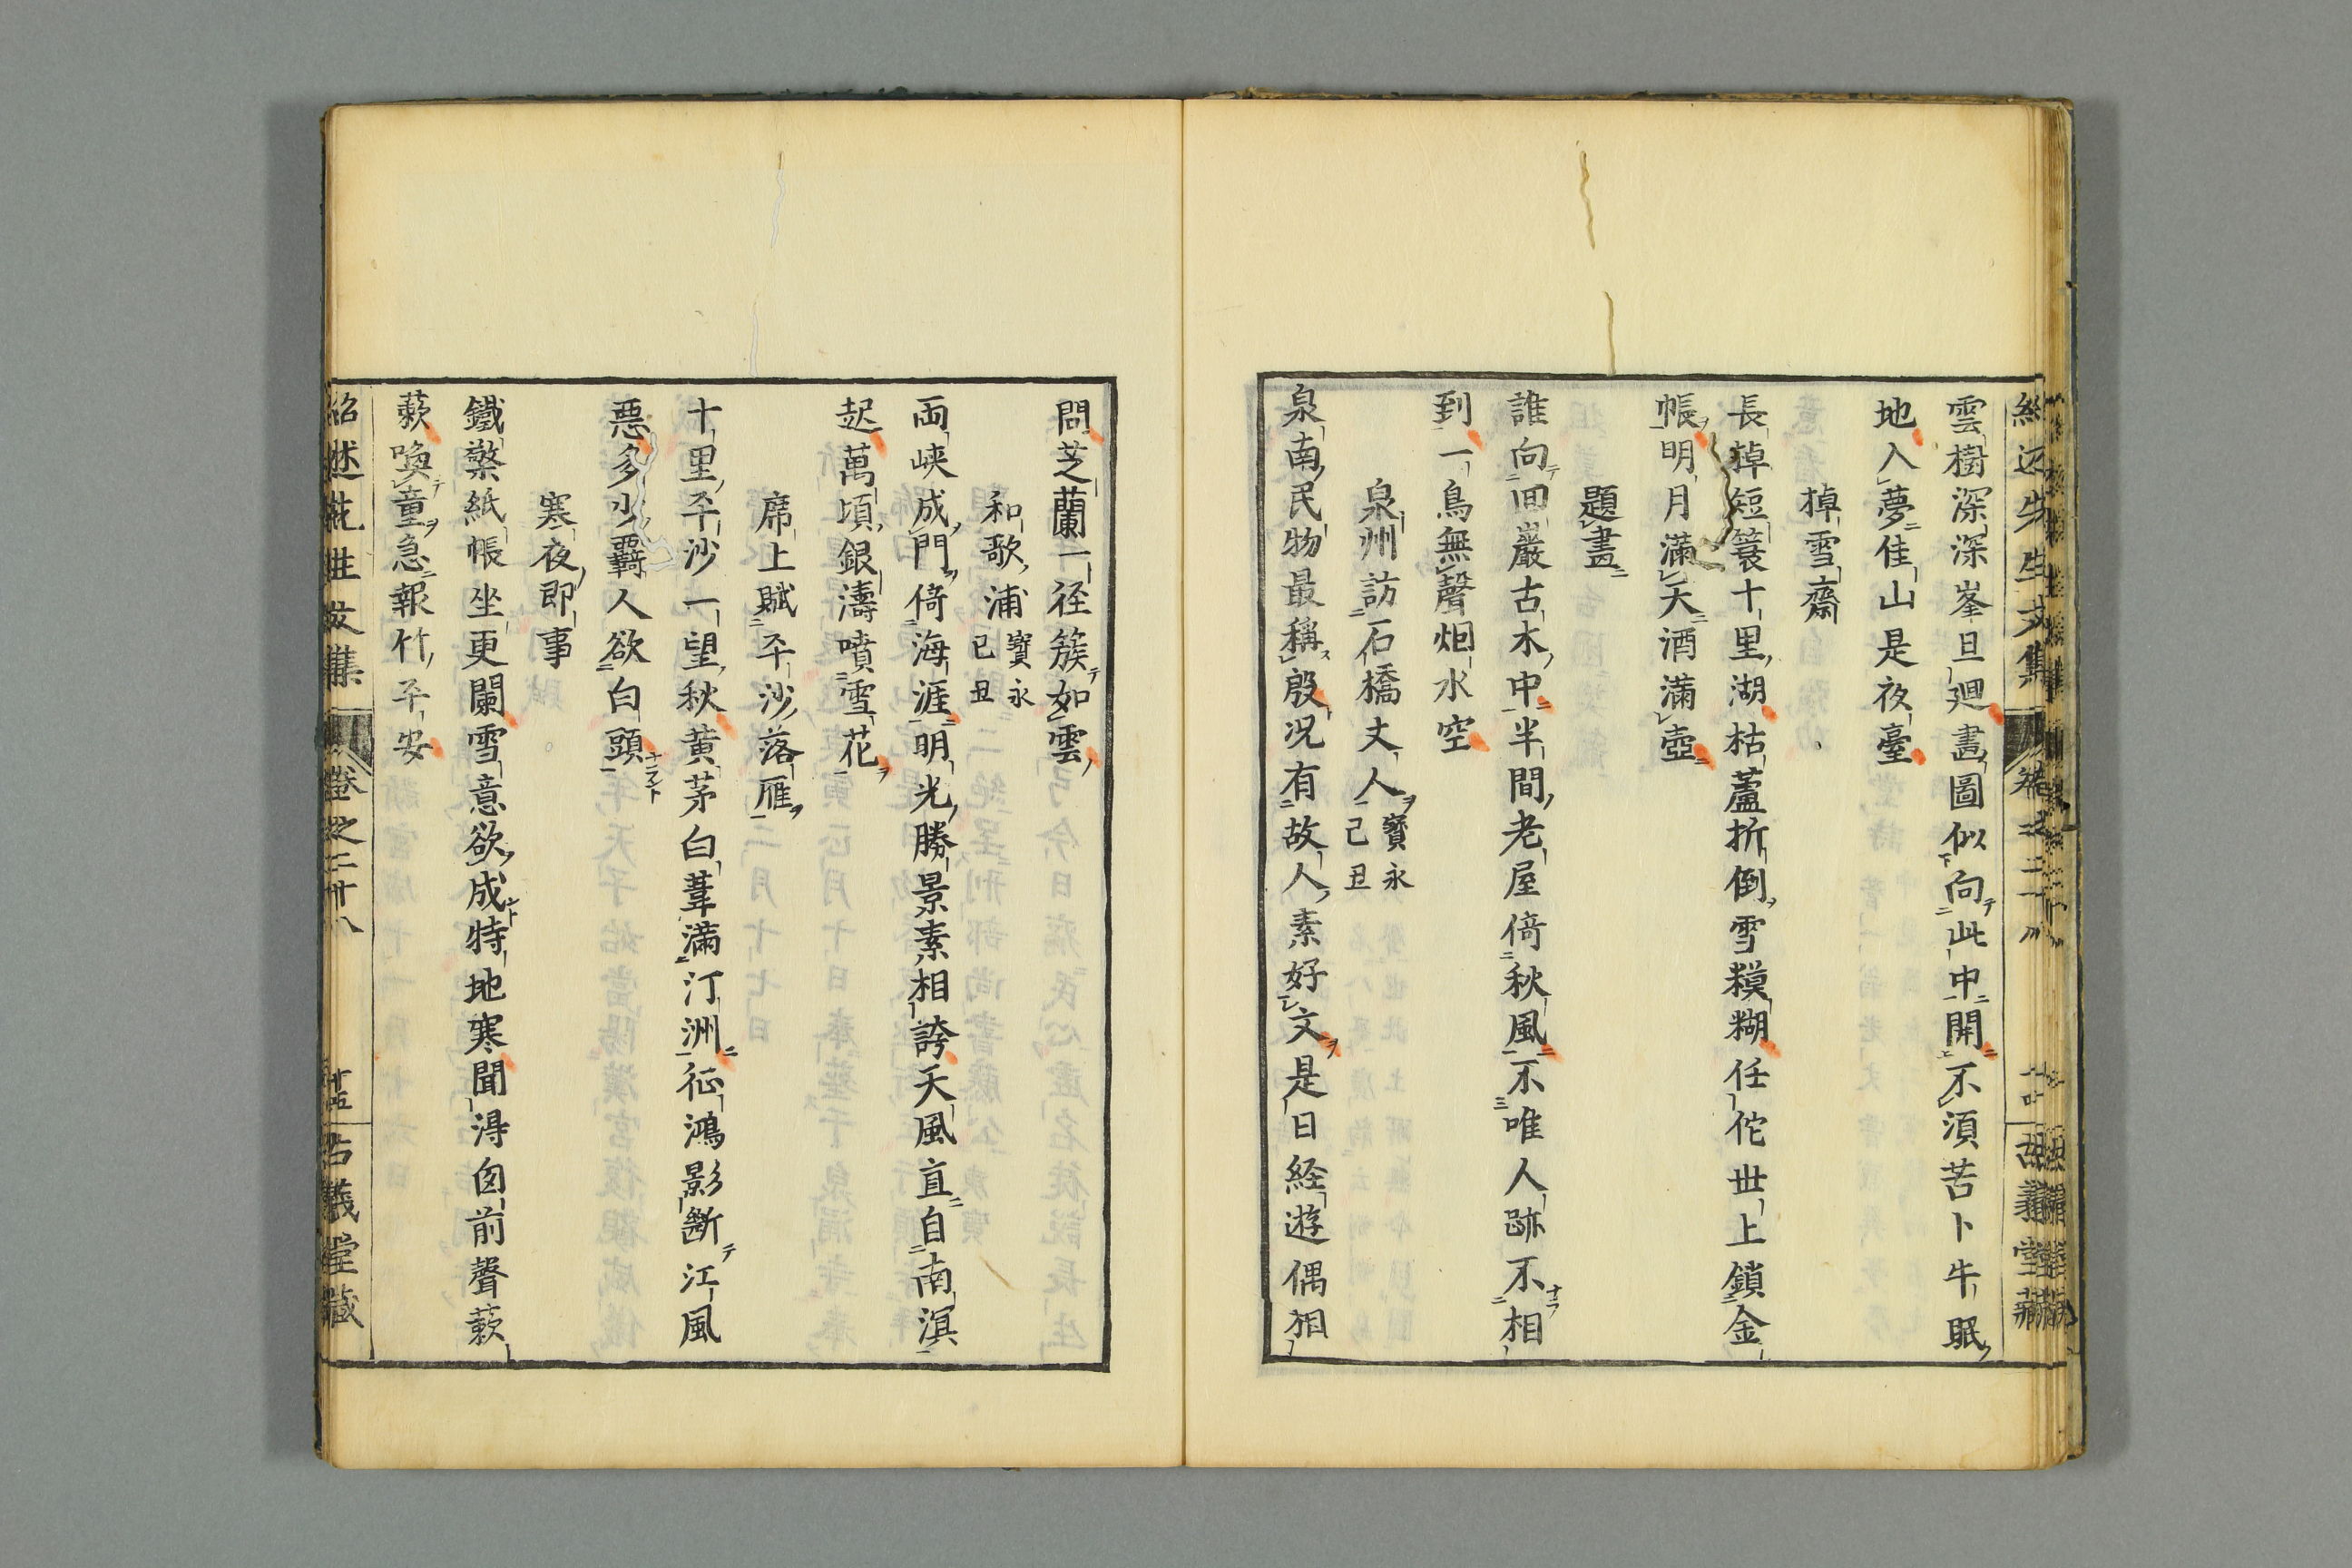 雲樹深深峯且廻畫圖似向此中開不須苦卜牛眠
地入夢佳山是夜臺
掉雪齋
長掉短簔十里湖枯蘆折倒雪糢糊任佗世上鎖金
帳明月滿天酒滿壺
題畫
誰向回巖古木中半間老屋倚秋風不唯人跡不相
到一鳥無聲烟水空
泉州訪石橋丈人寳永己丑
泉南民物最稱殷況有故人素好文是日経遊偶相
問芝蘭一径簇如雲
和歌浦寳永己丑
両峡成門倚海涯明光勝景素相誇天風直自南溟
起萬頃銀濤噴雪花
席上賦平沙落雁
十里平沙一望秋黄茅白葦滿汀洲征鴻影斷江風
悪多少覊人欲白頭
寒夜即事
鐵檠紙帳坐更闌雪意欲成特地寒聞得囱前聲蔌
蔌喚童急報竹平安
紹述先生文集 卷之二十八 十五 古義堂藏